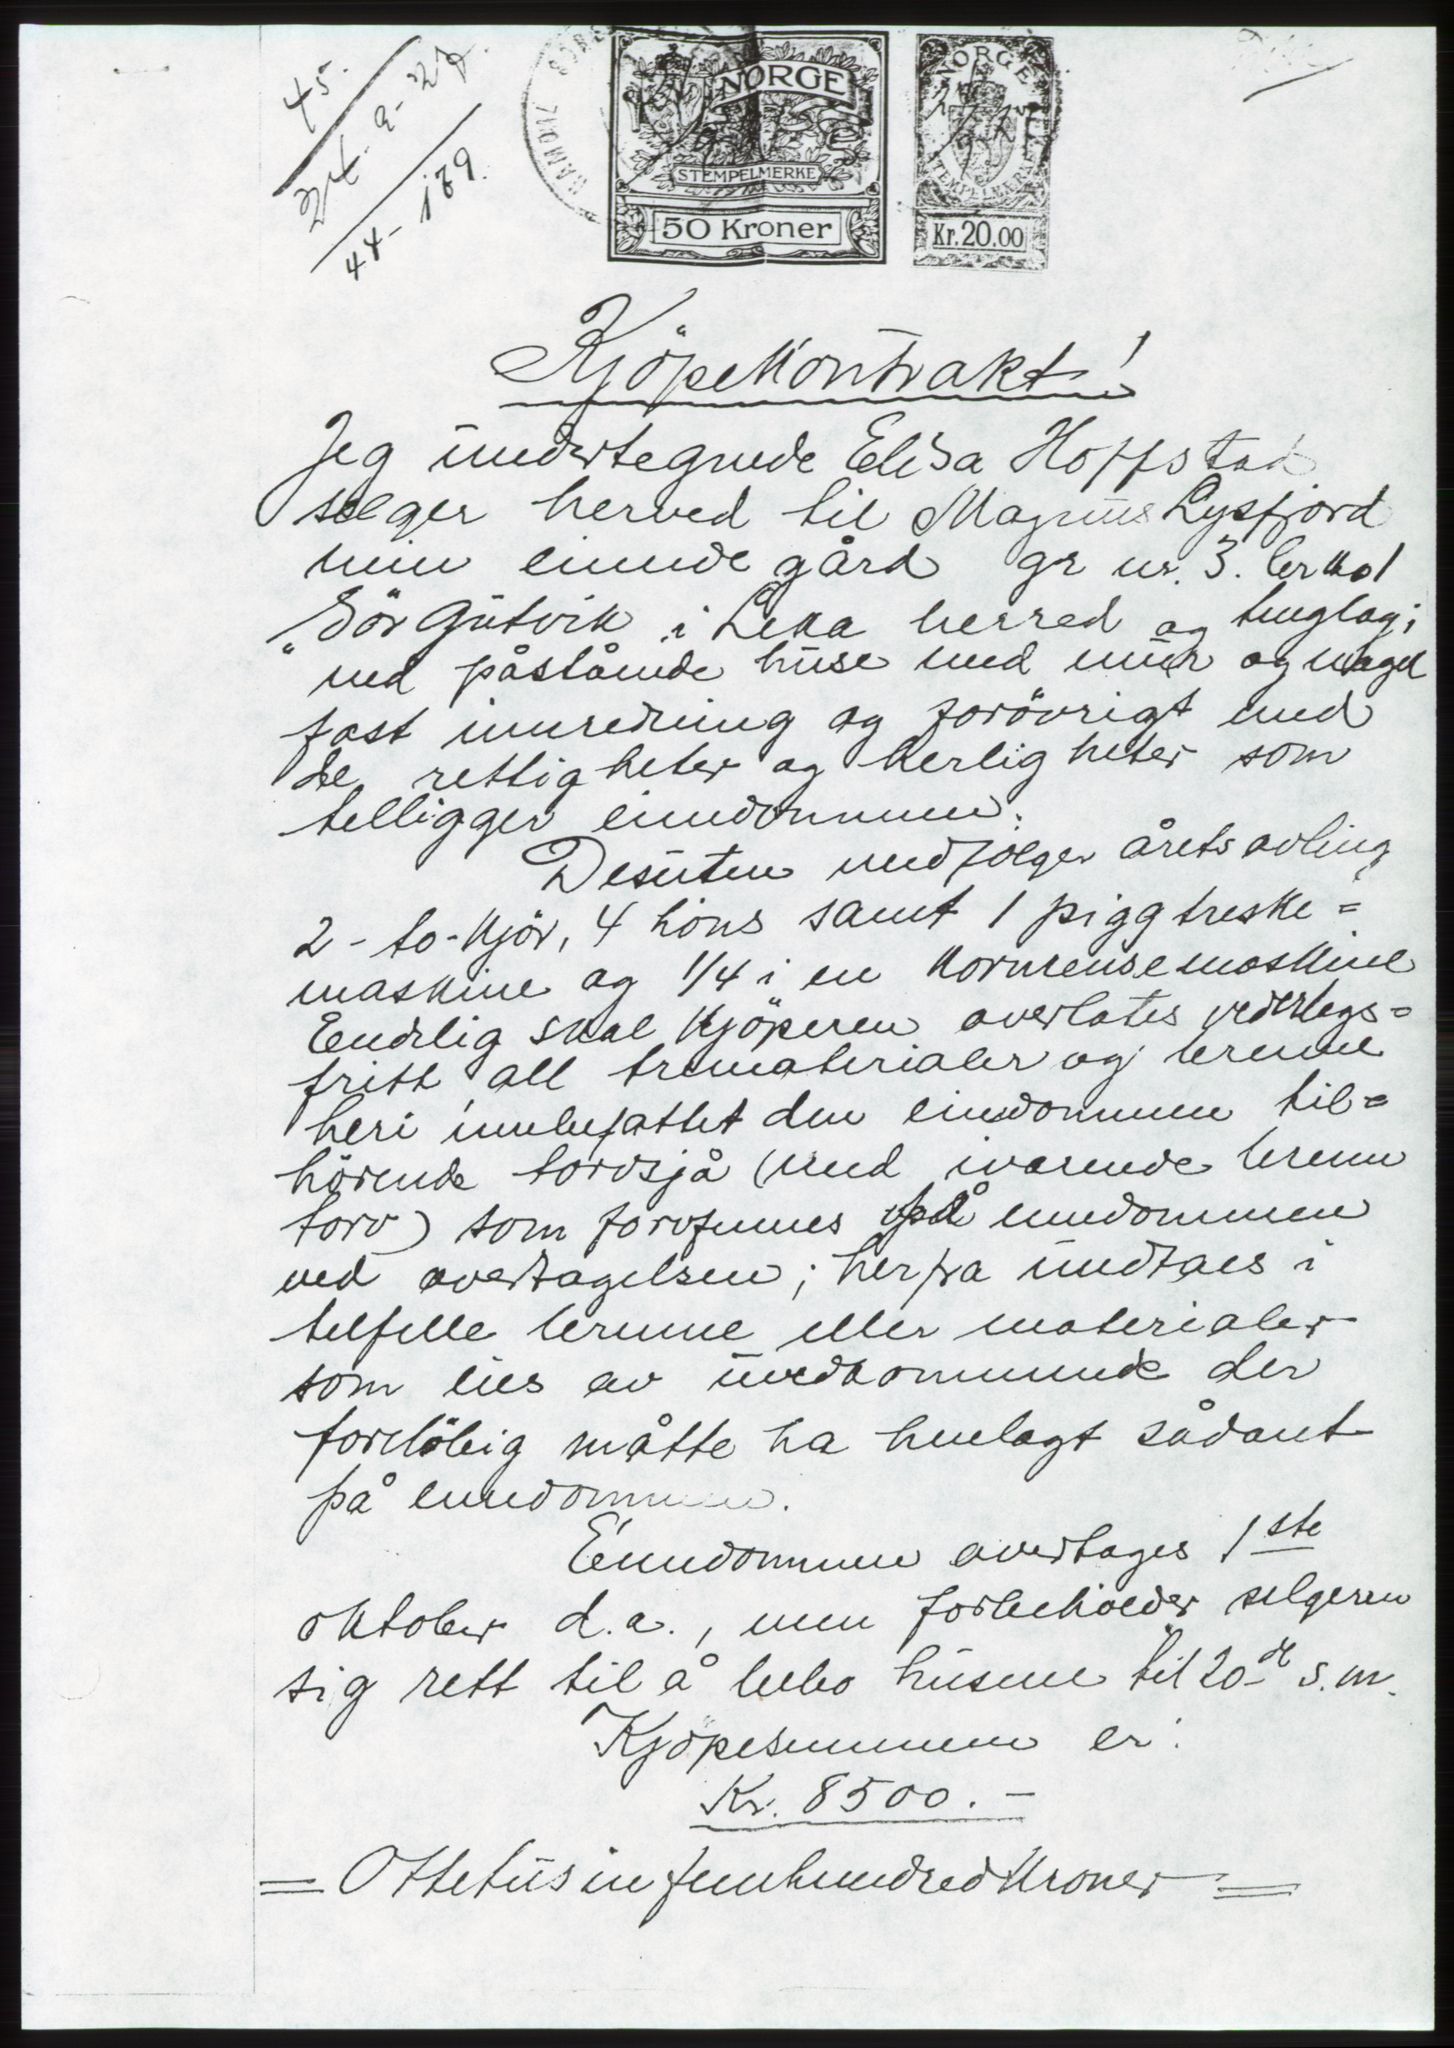 45.
24.9-27.
44-189.
NORGE
STEMPELMERKE
50 Kroner
NORGE
STEMPELMERKE
Kr.20.00
Kjöpekontrakt!
Jeg undertegnede Elisa Hoffstad
selger herved til Magnus Lysfjord
min eiende gård gr nr. 3. br No 1
"Sör Gutvik i Leka herred og tinglag;
med påstående huse med mur og nagel
fast innredning og forövrigt med
de rettigheter og herligheter som
telligger eiendommen.
Desuten medfölger årets avling
2 - to - kjör, 4 höns samt 1 piggtreske=
maskine og 1/4 i en kornrensemaskine
Endelig skal kjöperen overlates vederlags=
fritt all trematerialer og brenne
heri innbefattet den eiendommen til=
hörende torvsjå (med ivarende brenn
torv) som forefinnes på eiendommen
ved overtagelsen; herfra undtaes i
telfelle brenne eller materialer
som eies av uvedkommende der
foreløbig måtte ha henlagt sådant
på eiendommen.
Eiendommen overtages 1ste
oktober d.a., men forbeholder selgeren
sig rett til å bebo husene til 20-de s.m.
Kjöpesummen er:
Kr. 8500.-
= Ottetusin femhundred kroner =